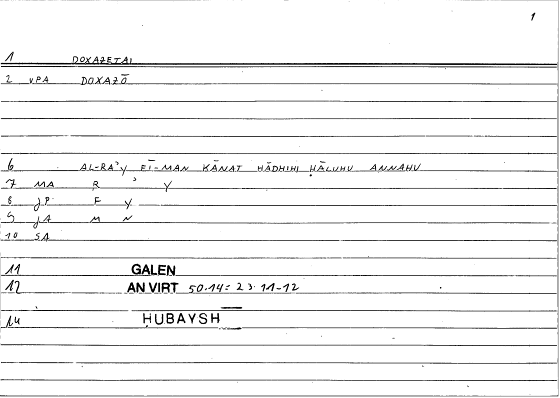 1
1 DOXAZETAI
2 VPA DOXAZŌ
6 AL-RAʾY FĪ-MAN KĀNAT HĀDHIHI ḤĀLUHU ANNAHU
7 MA R ʾ Y
8 JP F Y
9 JA M N
10 SA
11 GALEN
12 AN VIRT 50.14 = 23.11-12
14 ḤUBAYSH